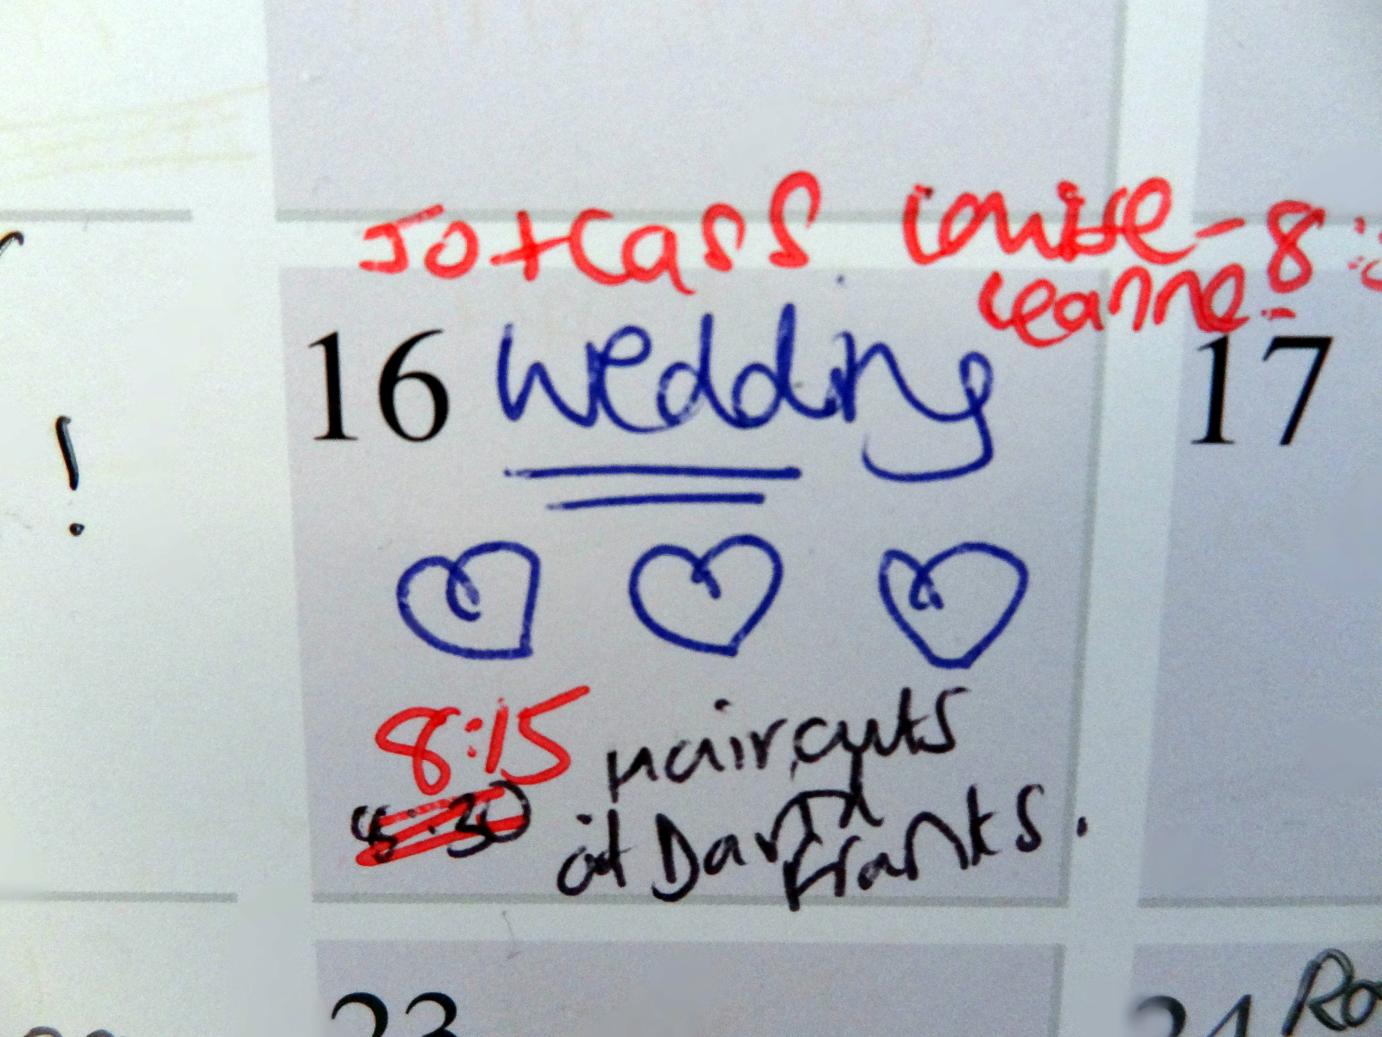 Jo + Cass Louise - 8:
Leanne -
16 Wedding 17
8:15 haircuts
8:30 at
Franks.
23 24